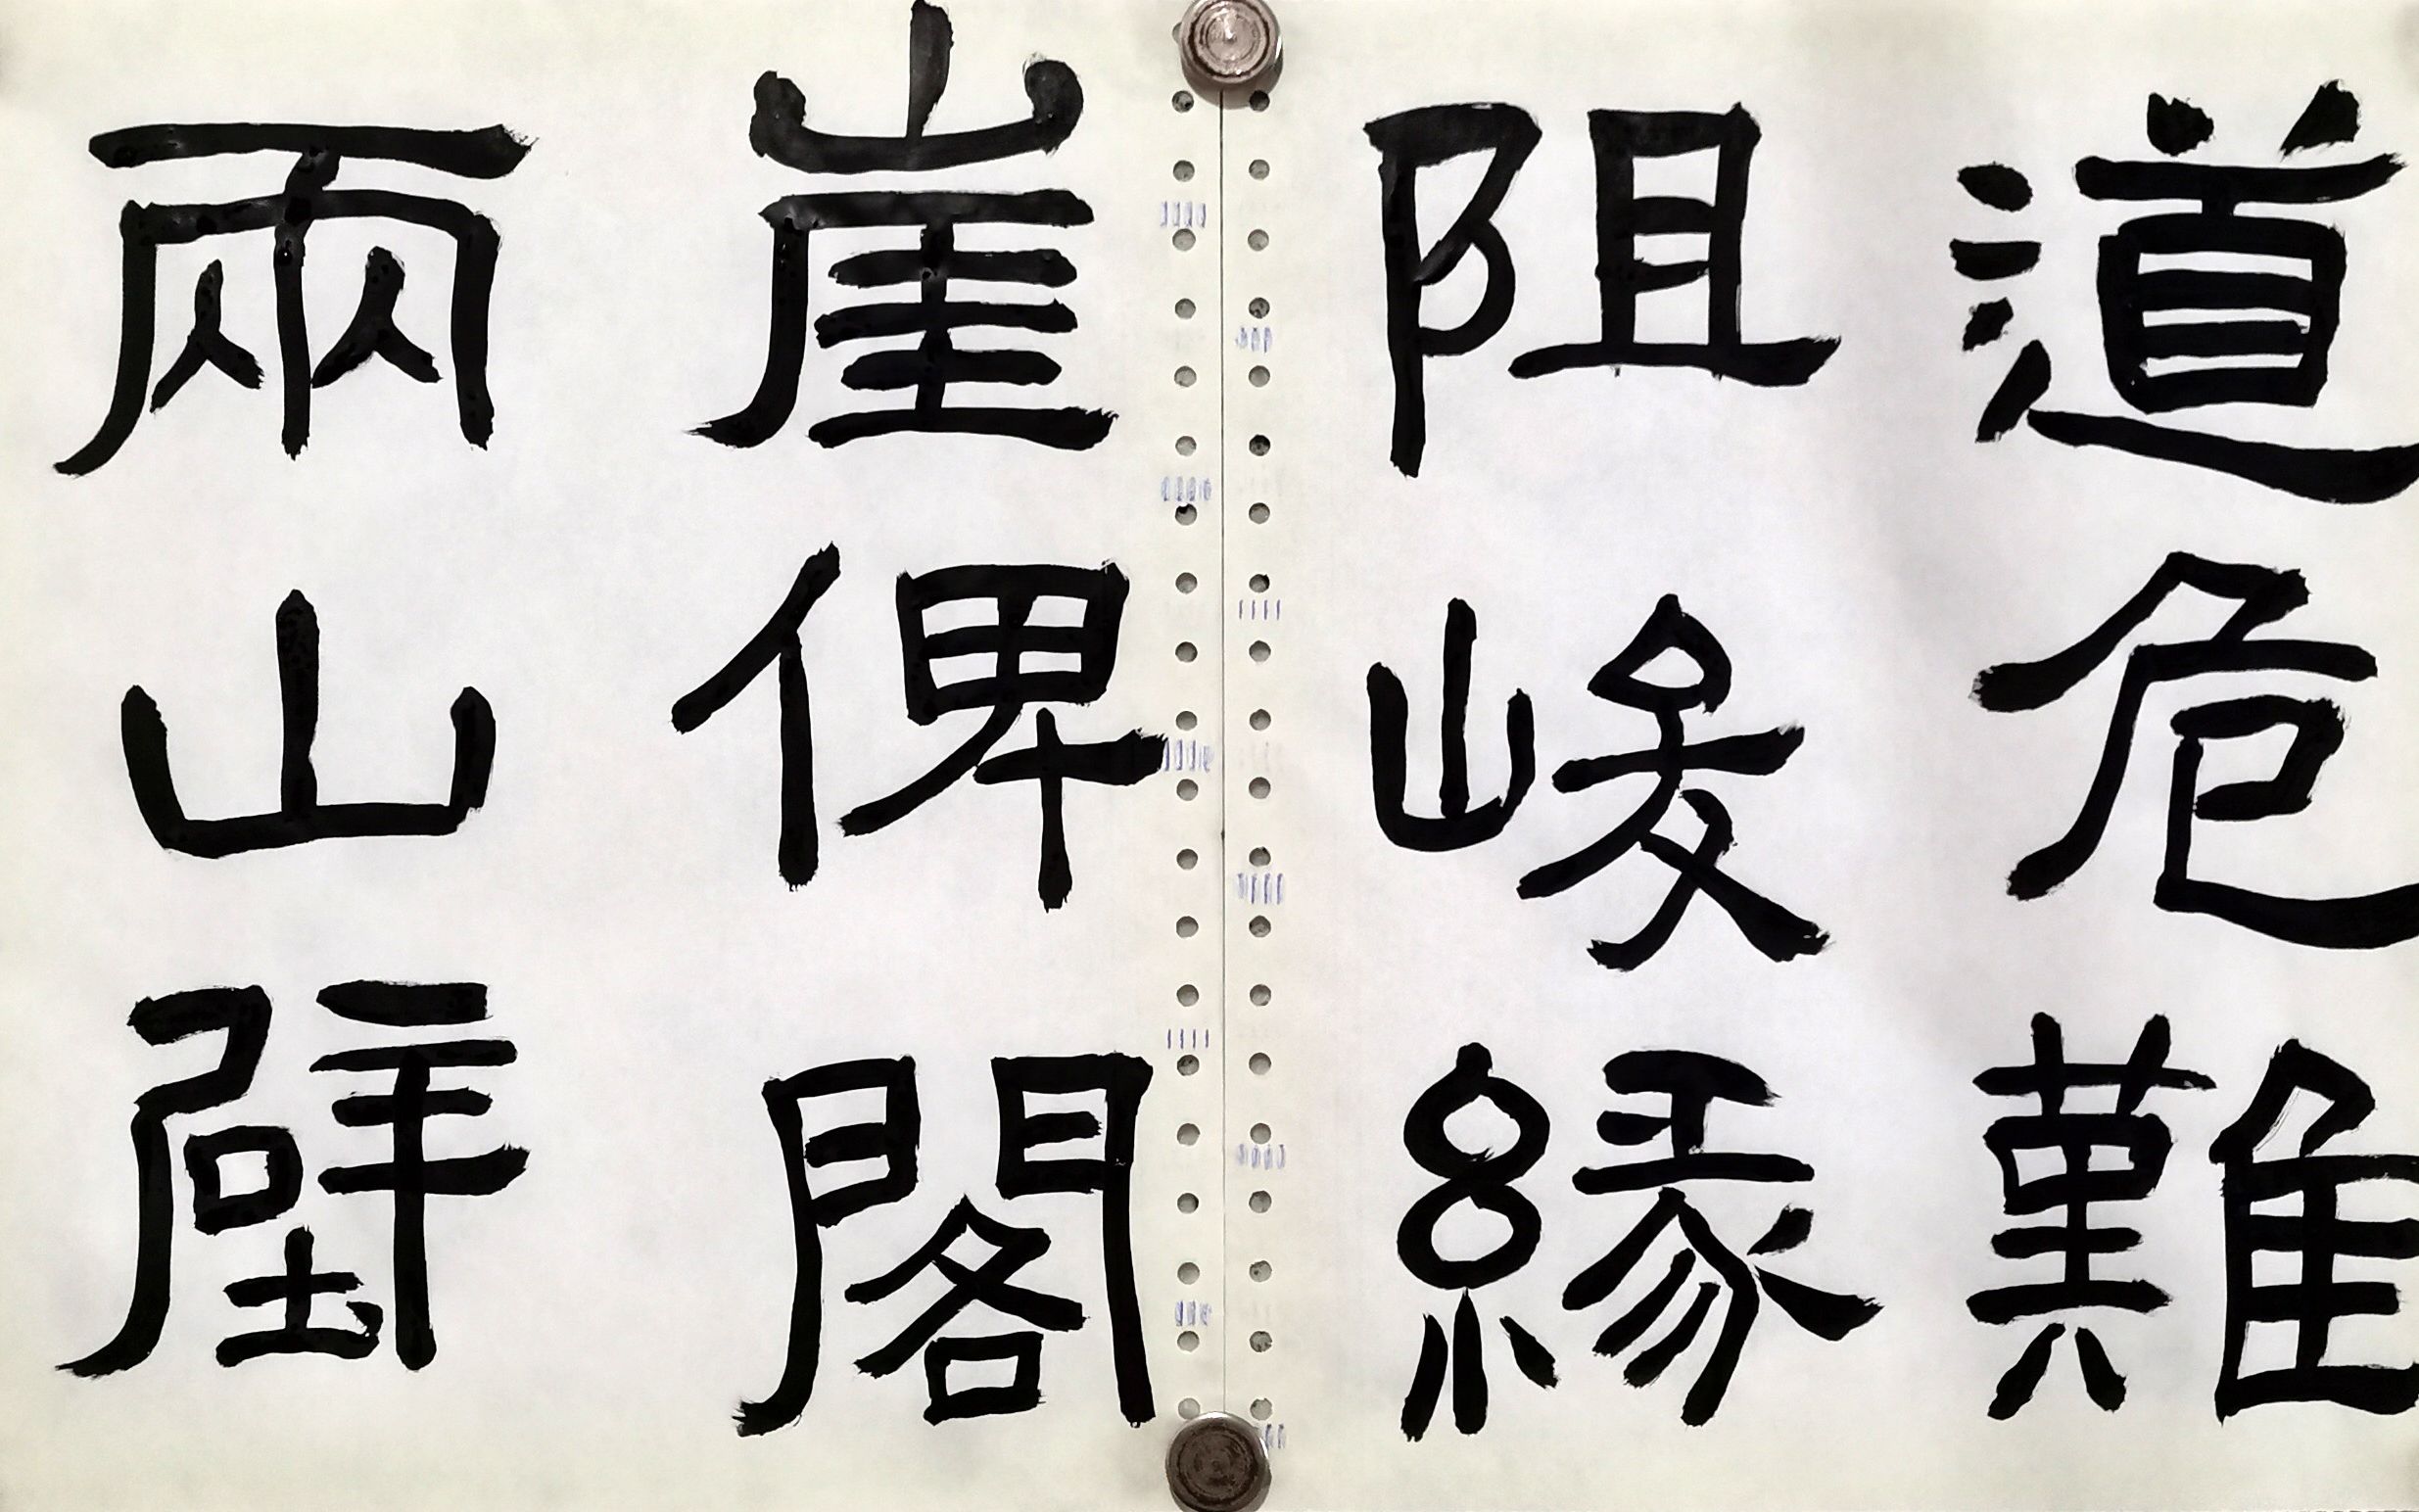 道危難
阻峻緣
崖俾閣
兩山壁